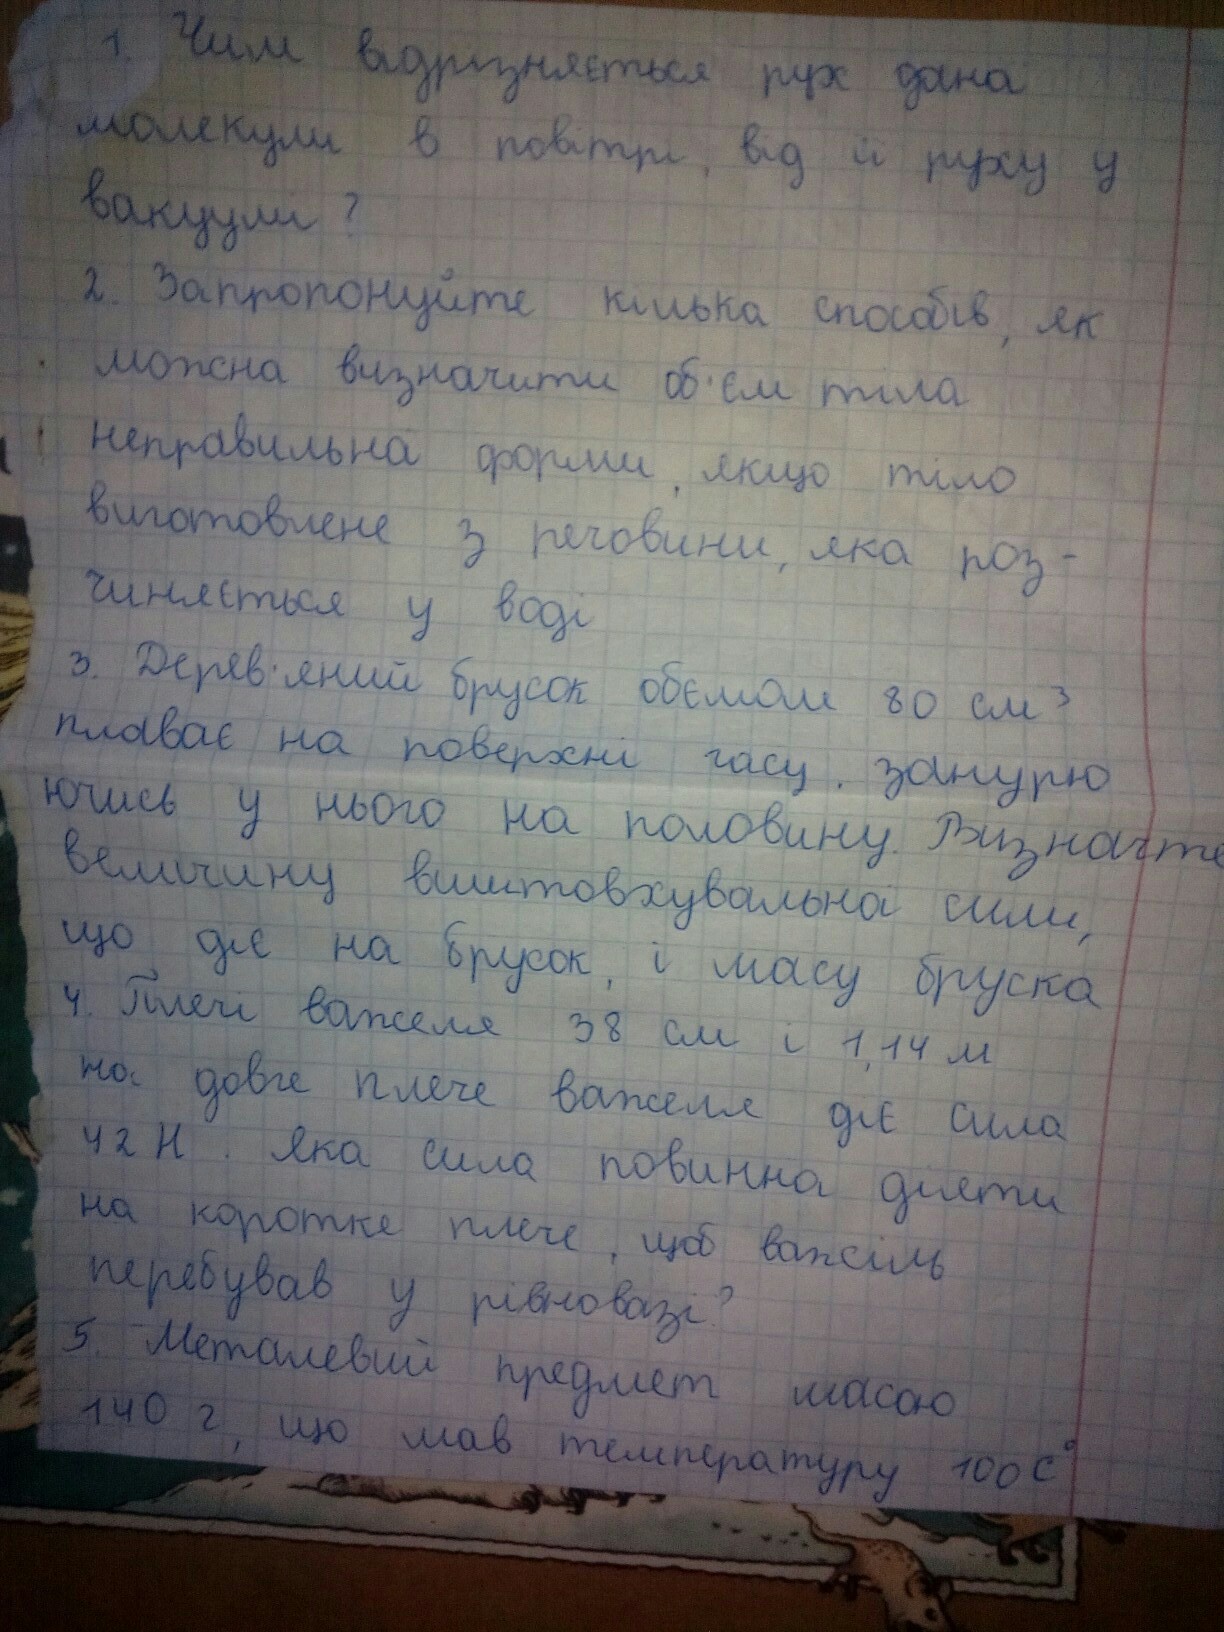 1. Чим відрізняється рух дана
молекули в повітрі, від її руху у
вакуумі?
2. Запропонуйте кілька способів, як
можна визначити об'єм тіла
неправильна форми, якщо тіло
виготовлене з речовини, яка роз-
чиняється у воді
3. Дерев'яний брусок обємом 80 см³
плаває на поверхні гасу, занурю
ючись у нього на половину. Визначте
величину виштовхувальна сили,
що діє на брусок, і масу бруска
4. Плечі важеля 38 см і 1,14 м
на довге плече важеля діє сила
42 Н. Яка сила повинна діяти
на коротке плече, щоб важіль
перебував у рівновазі?
5. Металевий предмет масою
140 г, що мав температуру 100 С°